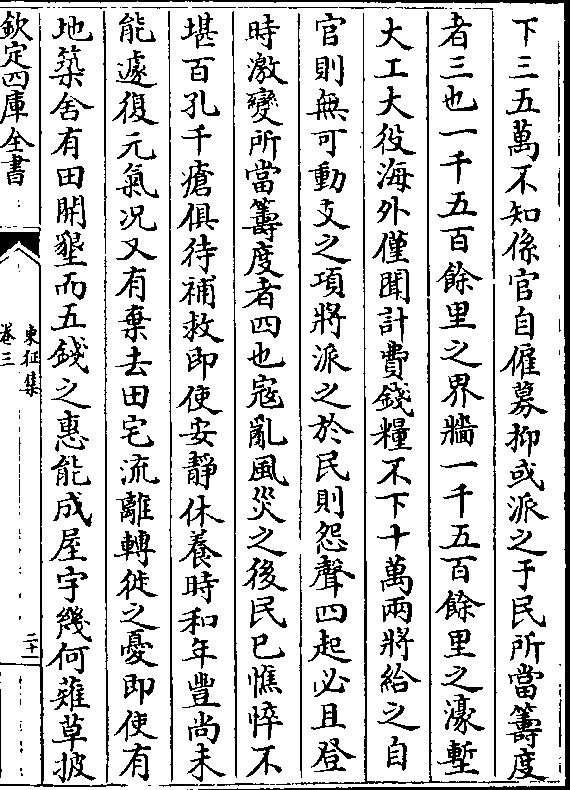 下三五萬不知係官自僱募抑或派之于民所當籌度
者三也一千五百餘里之界牆一千五百餘里之濠塹
大工大役海外僅聞計費錢糧不下十萬兩將給之自
官則無可動支之項將派之於民則怨聲四起必且登
時激變所當籌度者四也寇亂風災之後民已憔悴不
堪百孔千瘡俱待補救即使安靜休養時和年豐尚未
能遽復元氣况又有棄去田宅流離轉徙之憂即使有
地築舍有田開墾而五錢之惠能成屋宇幾何薙草披
欽定四庫全書
東征集
卷三
二十